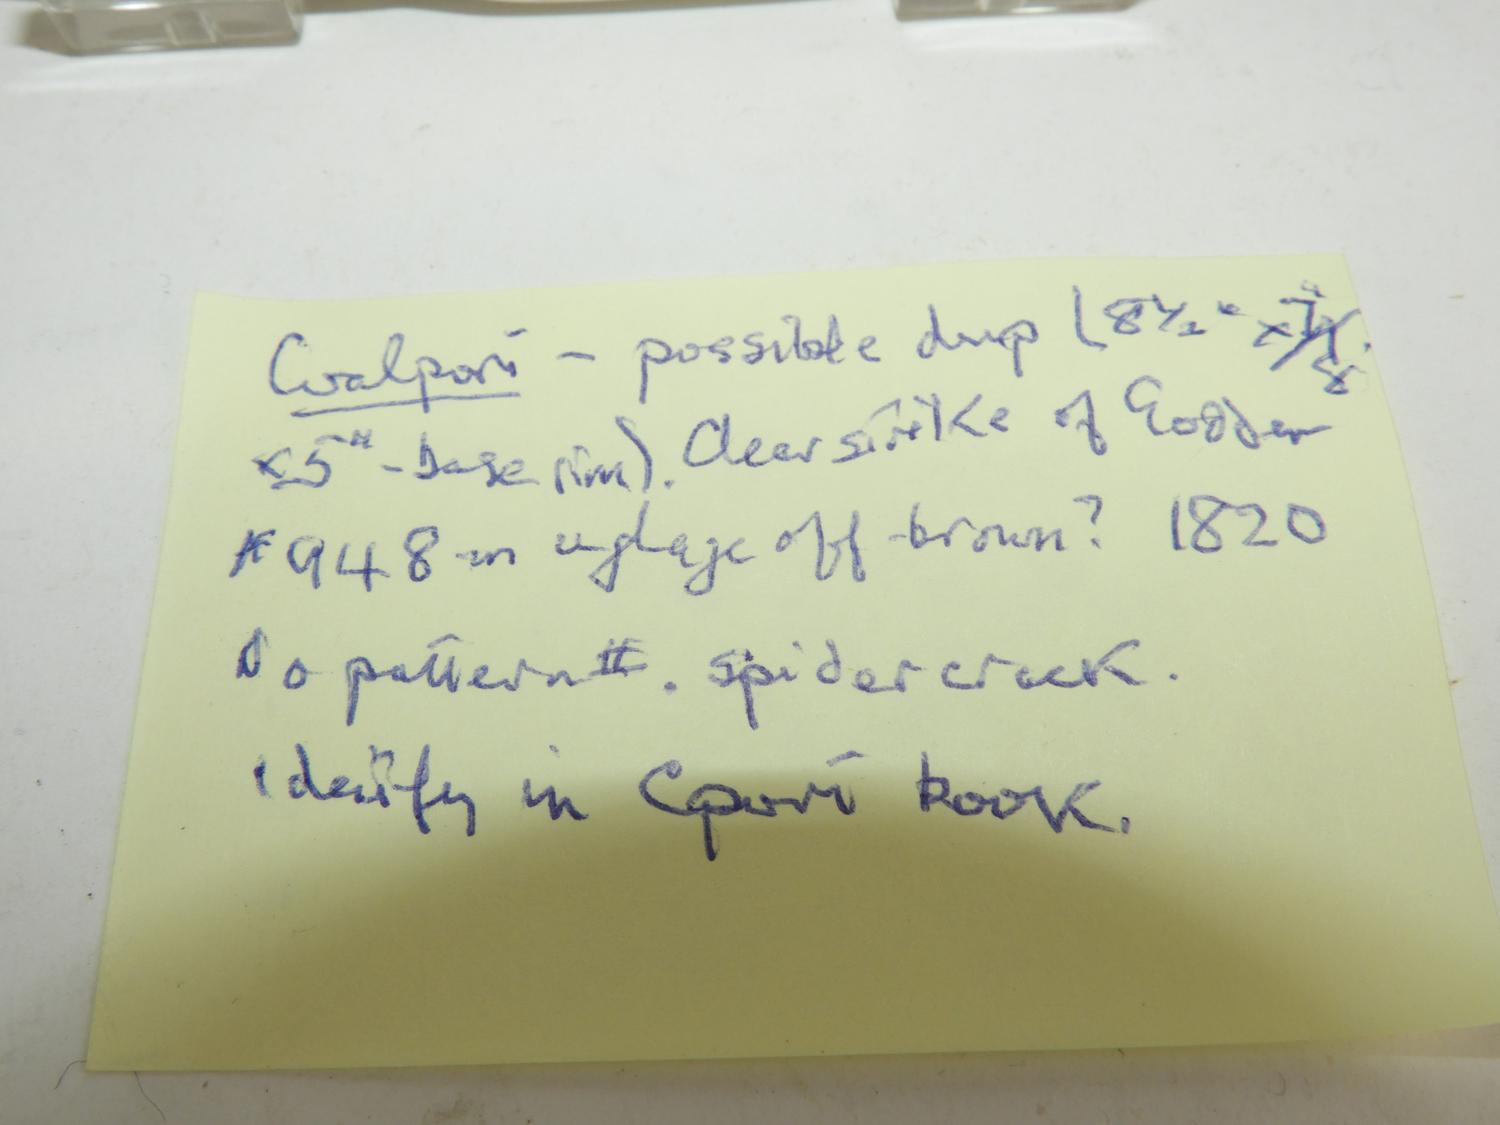 Coalport - possible dup (8½"
x5" - base rim). Clear strike of Godden
#948 in uglage off-brown? 1820
No pattern #. spider crack.
identify in Cport book.